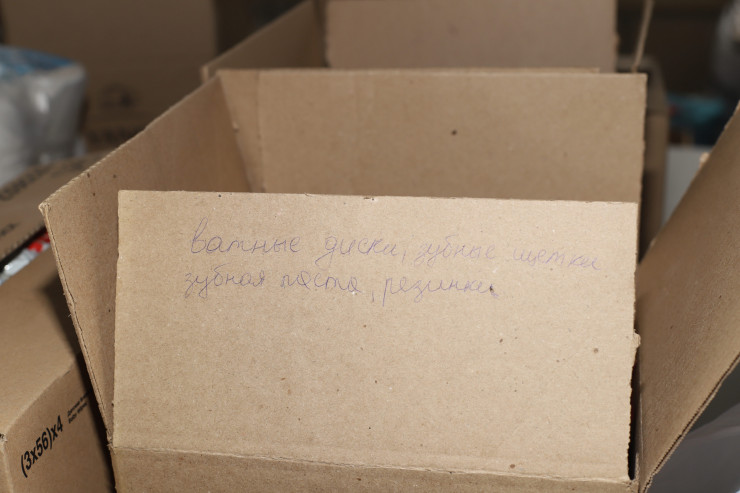 ватные диски, зубные щетки
зубная паста, резинки
(3x56)x4